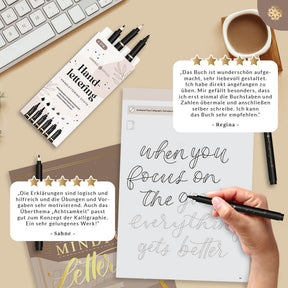 Hand
lettering
„Das Buch ist wunderschön aufge-
macht, sehr liebevoll gestaltet.
Ich habe direkt angefangen zu
üben. Mir gefällt besonders, dass
ich erst einmal die Buchstaben und
Zahlen übermale und anschließen
selber schreibe. Ich kann
das Buch sehr empfehlen."
- Regina -
when you
focus on
the g
everything
gets better
„Die Erklärungen sind logisch und
hilfreich und die Übungen und Vor-
gaben sehr motivierend. Auch das
Überthema „Achtsamkeit" passt
gut zum Konzept der Kalligraphie.
Ein sehr gelungenes Werk!"
- Sabne -
MIND
Letter